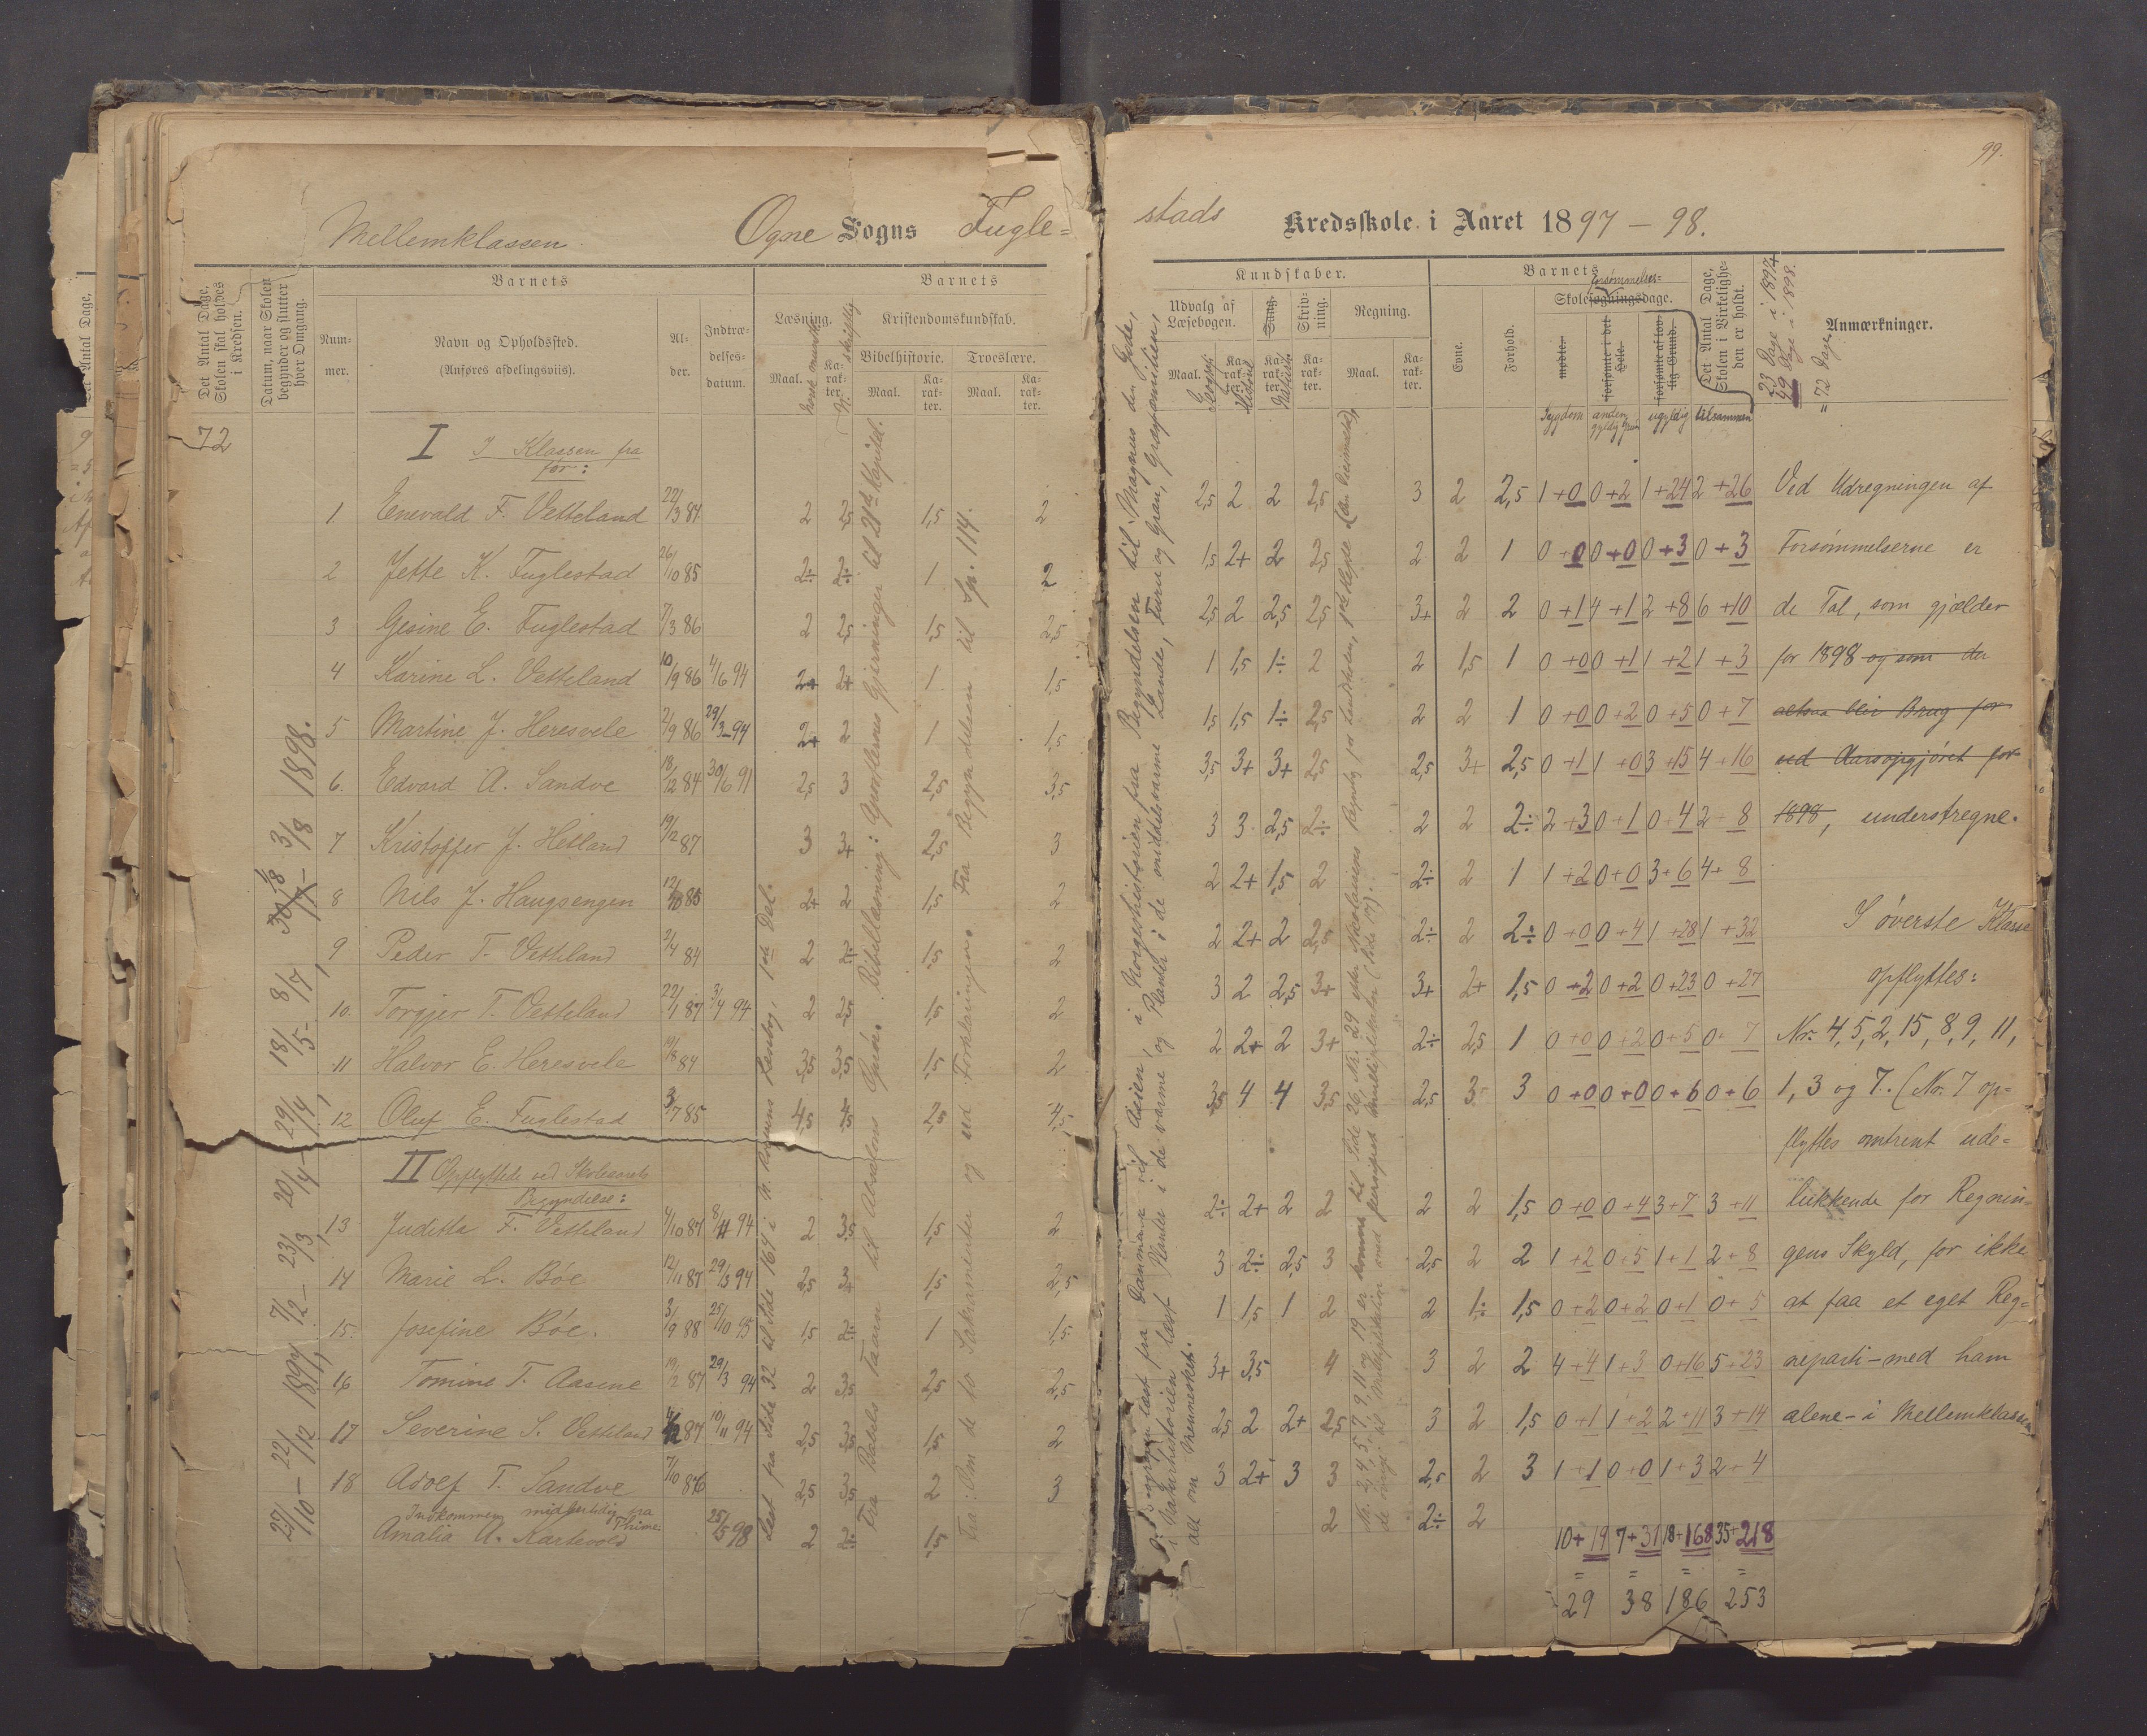 99.
Mellemklassen. Ogne Sogns Fugle=
stads Kredsskole i Aaret 1897 – 98.
Det Antal Dage, Skolen skal holdes i Kredsen.
Datum, naar Skolen begynder og slutter hver Omgang.
Barnets
Num-mer.
Navn og Opholdssted.
(Anføres afdelingsviis).
Al-der.
Indtræ-delses-datum.
Barnets
Læsning.
Maal.
Ka-rak-ter.
Kristendomskundskab.
Bibelhistorie.
Troeslære.
Maal.
Ka-rak-ter.
Maal.
Ka-rak-ter.
Kundskaber.
Udvalg af Læsebogen.
Sang.
Skriv-ning.
Regning.
Maal.
Ka-rak-ter.
Ka-rak-ter.
Ka-rak-ter.
Maal.
Ka-rak-ter.
Barnets
Evne.
Forhold.
forsømmelses=
Skolesøgningsdage.
mødte.
forsømte i det Hele.
forsømte af lov-lig Grund.
Det Antal Dage, Skolen i Virkelighe-den er holdt.
23 Dage i 1897+
49 Dage i 1898.
= 72 Dage
Anmærkninger.
Sygdom anden gyldig Grund ugyldig tilsammen
72
I I Klassen fra
før:
1. Enevald F. Vetteland 22/3 84 2 2,5 1,5 2
2 Jette K. Fuglestad 26/10 85 2÷ 2÷ 1 2
3 Gesine E. Fuglestad 7/3 86 2 2,5 1,5 2,5
4 Karine L. Vetteland 10/9 86 4/6 94 2+ 2+ 1 1,5
5 Martine J. Heresvele 2/9 86 29/3–94 2+ 2 1 1,5
6. Edvard A. Sandve 18/12 84 30/6 91 2,5 3 2,5 3,5
7 Kristoffer J. Hetland 19/12 87 3 3+ 2,5 3
8 Nils J. Haugsengen 12/10 85 2+ 2 1,5 2
9 Peder T. Vetteland 2/4 84 2 2÷ 1,5 2
10. Torgjer T. Vetteland 22/1 87 3/4 94 2 2,5 1,5 2
11 Halvor E. Heresvele 84 3,5 3,5 1,5 2
12 Oluf E. Fuglestad 3/7 85 4,5 4,5 2,5 4,5
II Opflyttede ved Skoleaarets
Begyndelse:
13 Juditta F. Vetteland 87 94 2 3,5 1,5 2
14 Marie L. Bøe 12/11 87 29/3 94 2,5 3+ 1,5 2,5
15. Josefine Bøe. 3/9 88 25/10 95 1,5 2÷ 1 1,5
16 Tomine T. Aasene 19/2 87 29/3 94 2 3,5 2,5 2,5
17 Severine S. Vetteland 87 10/11 94 2,5 3,5 1,5 2
18 Adolf T. Sandve 7/10 86 2,5 3,5 2 3
Indkommen midlertidig fra Thime
Amalia A. Kartevold 25/5 98 2 2÷ 1,5
27/10 – 22/12 1897, 7/2 – 23/3, 20/4 – 29/4, 18/5 – 8/7, – 3/8 1898.
Læst fra Side 32 til Side 164 i N. Rognuns Læsebog, 1ste Del.
Fra Rakels Taarn til Absalons Opr. Bibellæsning: Apostlernes Gjerninger til 21de Kapitel.
Fra: Om de to Sakramenter og ud Forklaringen. Fra Begyndelsen til Sp. 114.
i Norgeshistorien fra Begyndelsen til Magnus den Gode,
alt om Mennesket.
2,5 2 2 2,5 3 2 2,5 1+0 0+2 1+24 2+26 Ved Udregningen af
1,5 2+ 2 2,5 2 2 1 0+0 0+0 0+3 0+3 Forsømmelserne er
2,5 2 2,5 2,5 3+ 2 2 0+1 4+1 2+8 6+10 de Tal, som gjælder
1 1,5 1÷ 2 2 1,5 1 0+0 0+1 1+2 1+3 for 1898 og som der
1,5 1,5 1÷ 2,5 2 2 1 0+0 0+2 0+5 0+7 altsaa blir Brug for
3,5 3+ 3+ 2,5 2,5 3+ 2,5 0+1 1+0 3+15 4+16 ved Aarsopgjøret for
3 3 2,5 2÷ 2 2 2÷ 2+3 0+1 0+4 2+8 1898, understregne.
2 2+ 1,5 2 2÷ 2 1 1+2 0+0 3+6 4+8
2 2+ 2 2,5 2÷ 2 2÷ 0+0 0+4 1+28 1+32 I øverste Klasse
3 2 2,5 3+ 3+ 2+ 1,5 0+2 0+2 0+23 0+27 opflyttes:
2 2+ 2 3+ 2÷ 2,5 1 0+0 0+2 0+5 0+7 Nr. 4, 5, 2, 15, 8, 9, 11,
3,5 4 4 3,5 2,5 3 3 0+0 0+0 0+6 0+6 1, 3 og 7. (Nr. 7 op=
flyttes omtrent ude=
2÷ 2+ 2 2 2 2 1,5 0+0 0+4 3+7 3+11 lukkende for Regnin=
3 2÷ 2,5 3 2,5 2 2 1+2 0+5 1+1 2+8 gens Skyld, for ikke
1 1,5 1 2 2 1÷ 1,5 0+2 0+2 0+1 0+5 at faa et eget Reg=
3+ 3,5 4 3 2 2 4+4 1+3 0+16 5+23 neparti – med ham
2,5 2 2+ 2,5 3 2 1,5 0+1 1+2 2+11 3+14 alene – i Mellemklassen
3 2+ 3 3 2,5 2 3 1+1 0+0 1+3 2+4
2 2÷ 2
10+19 7+31 18+168 35+218
= = = =
29 38 186 253